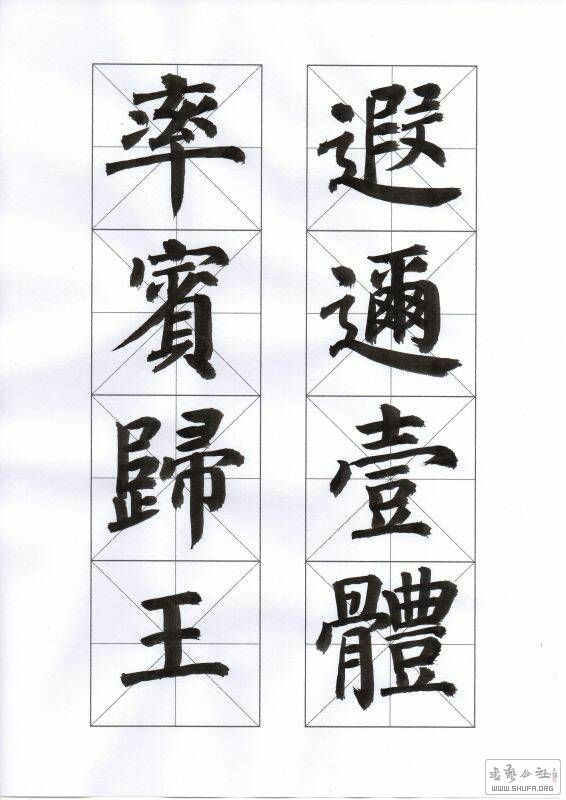 遐邇壹體
率賓歸王
WWW.SHUFA.ORG